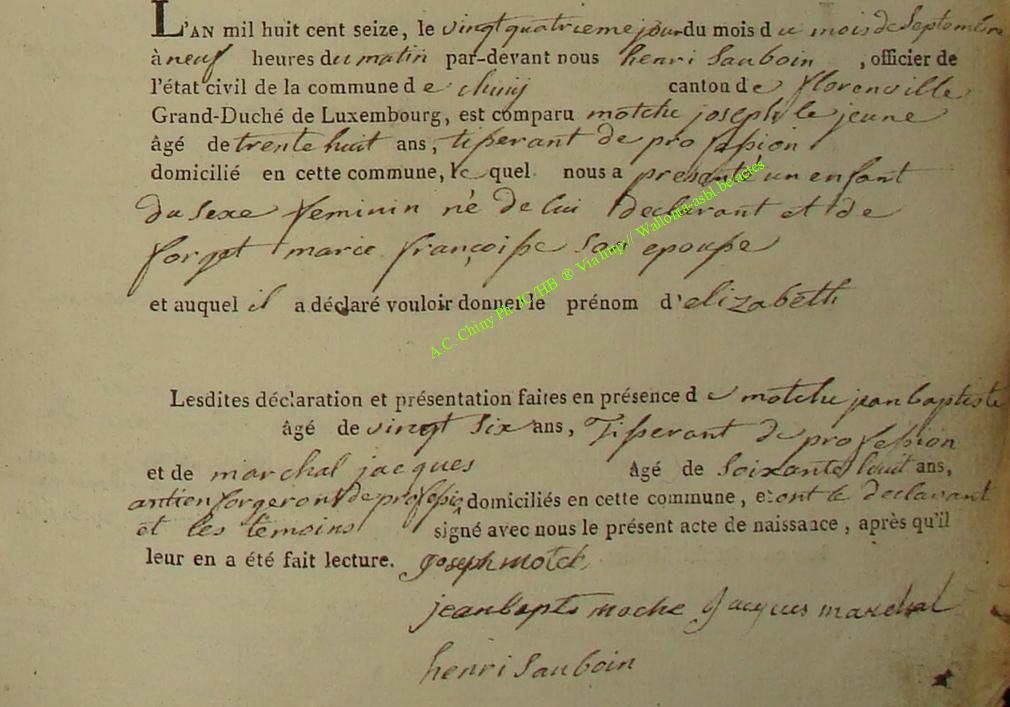 L'AN mil huit cent seize, le vingt quatrieme jour du mois d u mois de Septembre
à neuf heures du matin par-devant nous henri Sauboin , officier de
l'état civil de la commune d e chiny canton de florenville
Grand-Duché de Luxembourg, est comparu motche joseph le jeune
âgé de trente huit ans, tisserant de profession
domicilié en cette commune, le quel nous a presenté un enfant
du sexe feminin né de lui declarant et de
forget marie françoisse son epousse
et auquel il a déclaré vouloir donner le prénom d'elizabeth
A.C. Chiny Ph JC/HB ® Via http// Wallonia-asbl.be:actes
Lesdites déclaration et présentation faites en présence d e motche jean baptiste
âgé de vingt six ans, Tisserant de profession
et de marchal jacques âgé de soixante huit ans,
antien forgeront de profession domiciliés en cette commune, et ont le declarant
et les temoins signé avec nous le présent acte de naissance, après qu'il
leur en a été fait lecture. joseph motch
jean bapte moche Jacques marchal
henri Sauboin